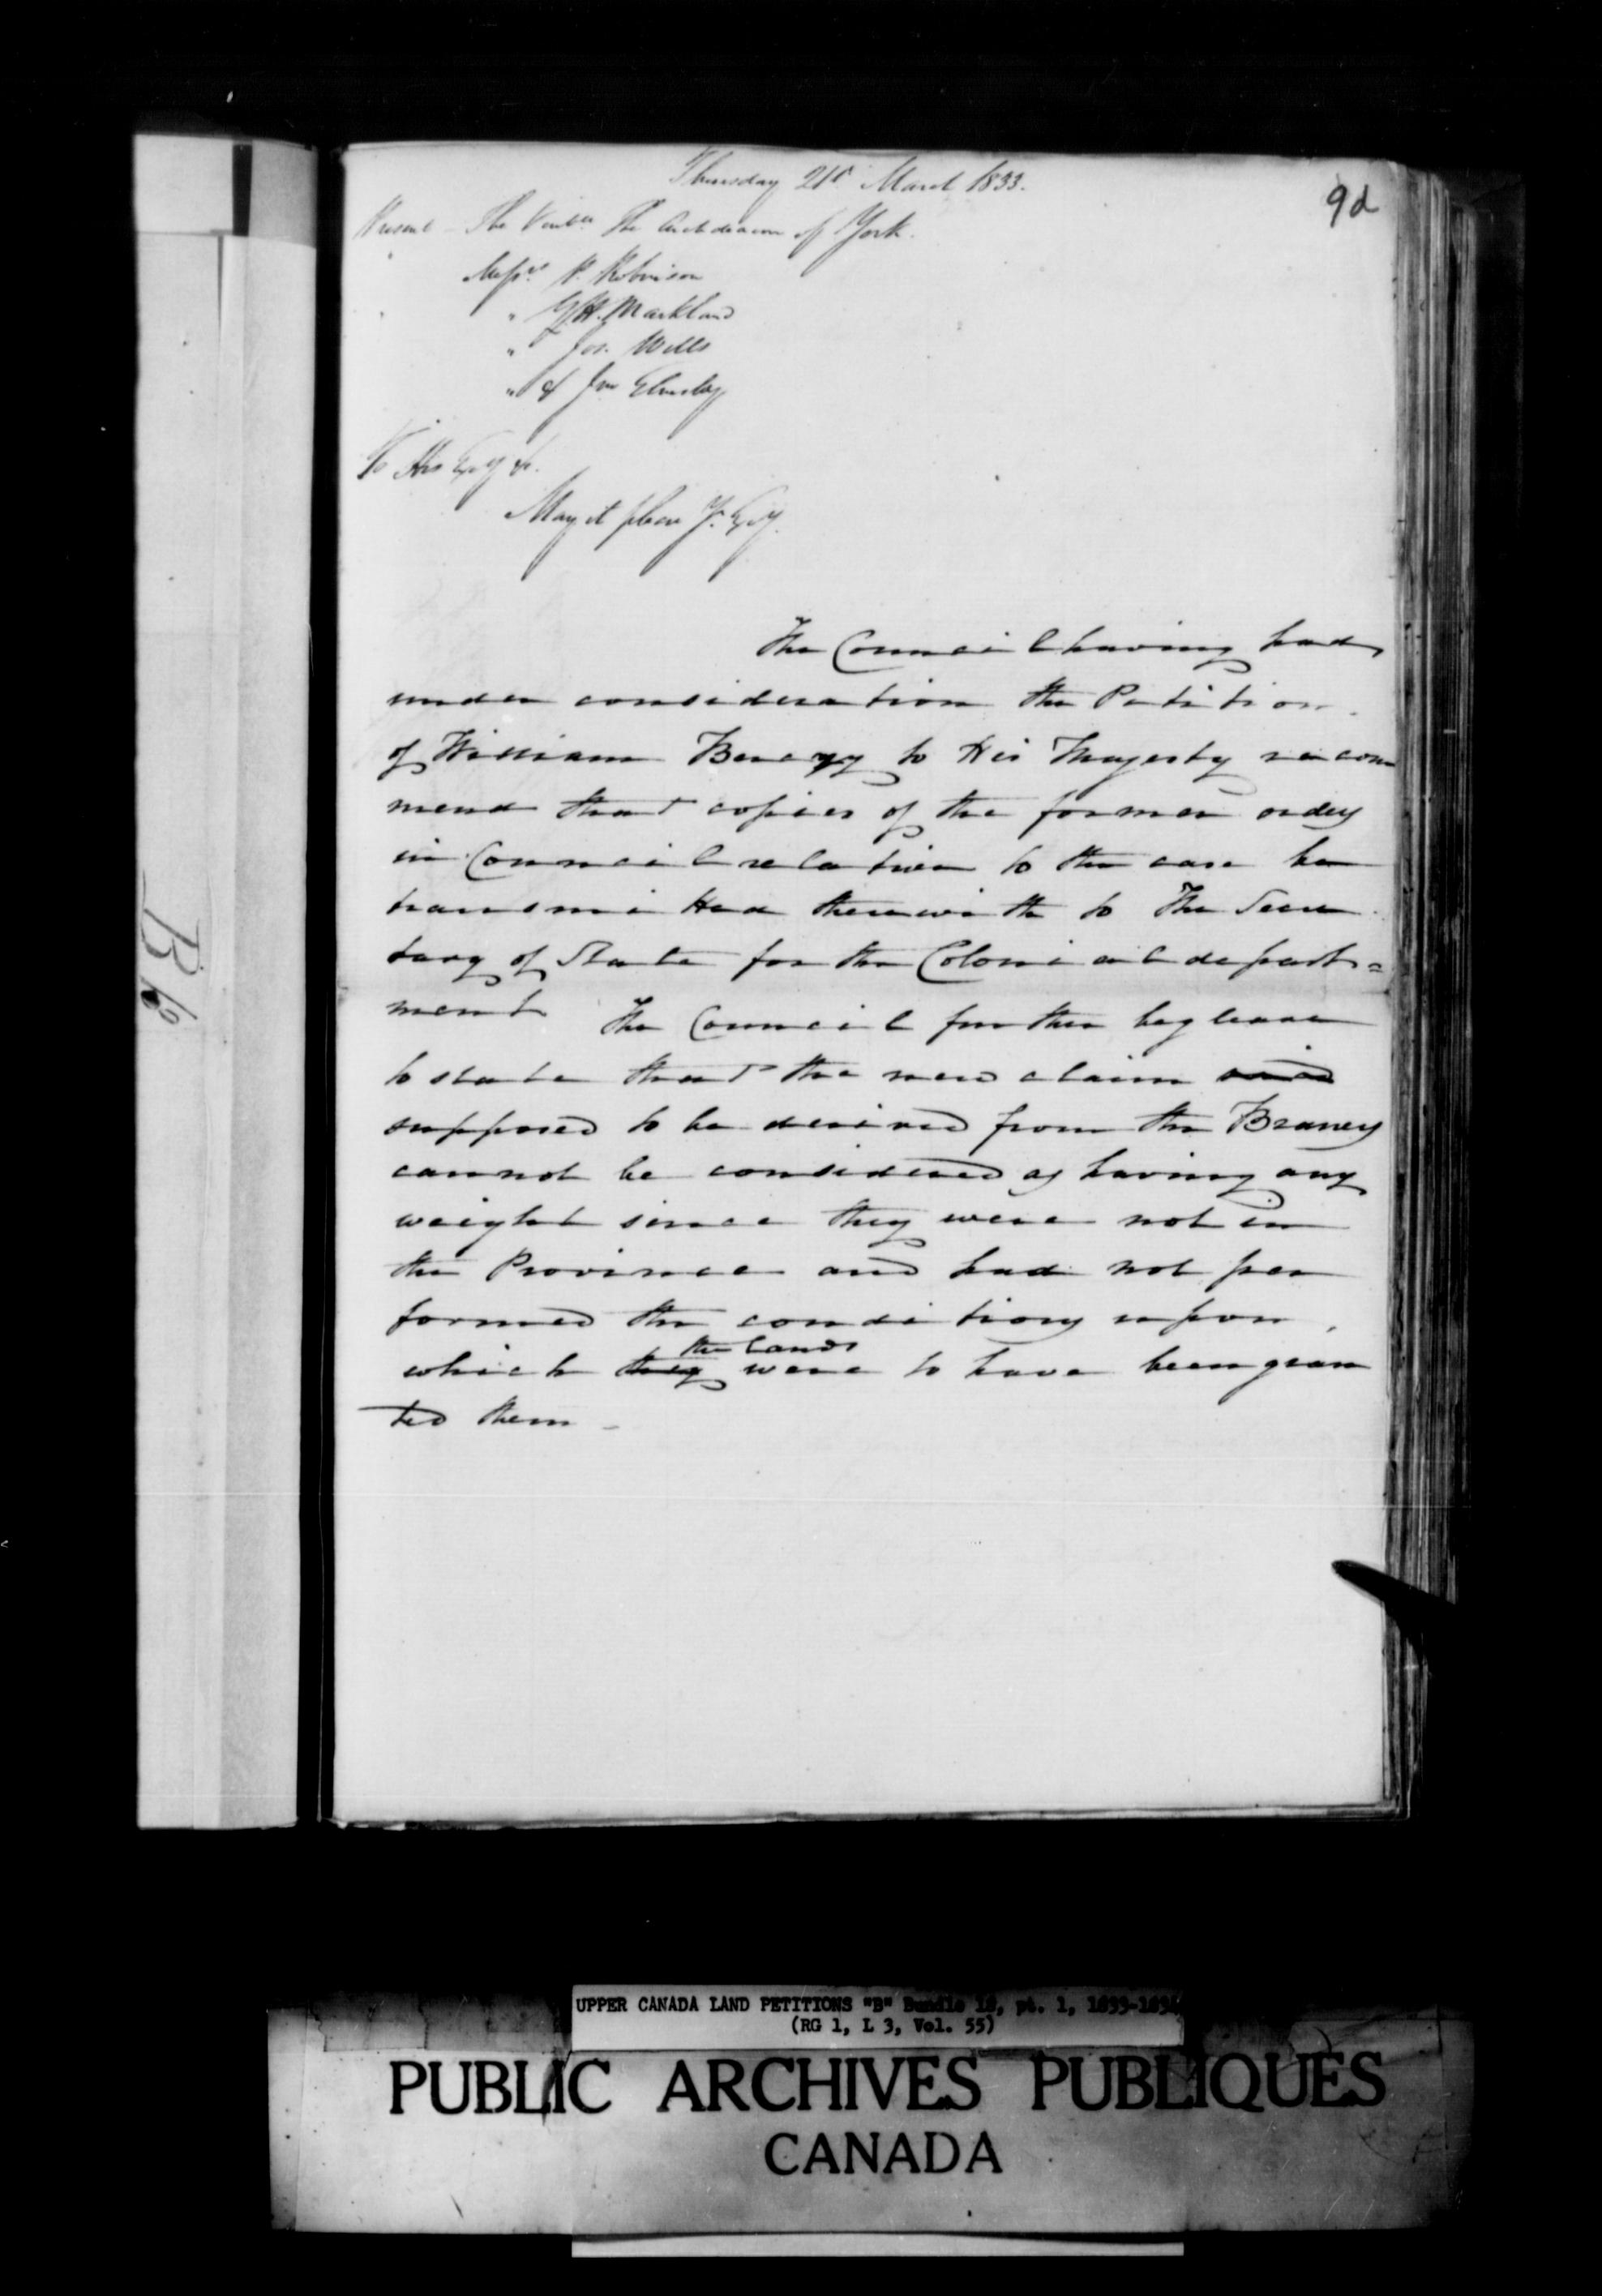 Thursday 21st March 1833.
9d
Present - The Venble The Archdeacon of York.
Messrs P. Robinson
" G.H. Markland
" Jos. Wells
" & Jno Elmsley
To His Exy &c.
May it please Yr. Exy.
The Council having had
under consideration the Petition
of William Berczy to His Majesty recom
mend that copies of the former orders
in Council relative to the case be
transmitted therewith to The Secre
tary of State for the Colonial depart=
ment The Council further beg leave
to state that the new claim
supposed to be derived from the
cannot be considered as having any
weight since they were not in
the Province and had not per
formed the conditions upon
the lands
which they were to have been gran
ted them -
UPPER CANADA LAND PETITIONS "B" Bundle 18, pt. 1, 1833-183
(RG 1, L 3, Vol. 55)
PUBLIC ARCHIVES PUBLIQUES
CANADA